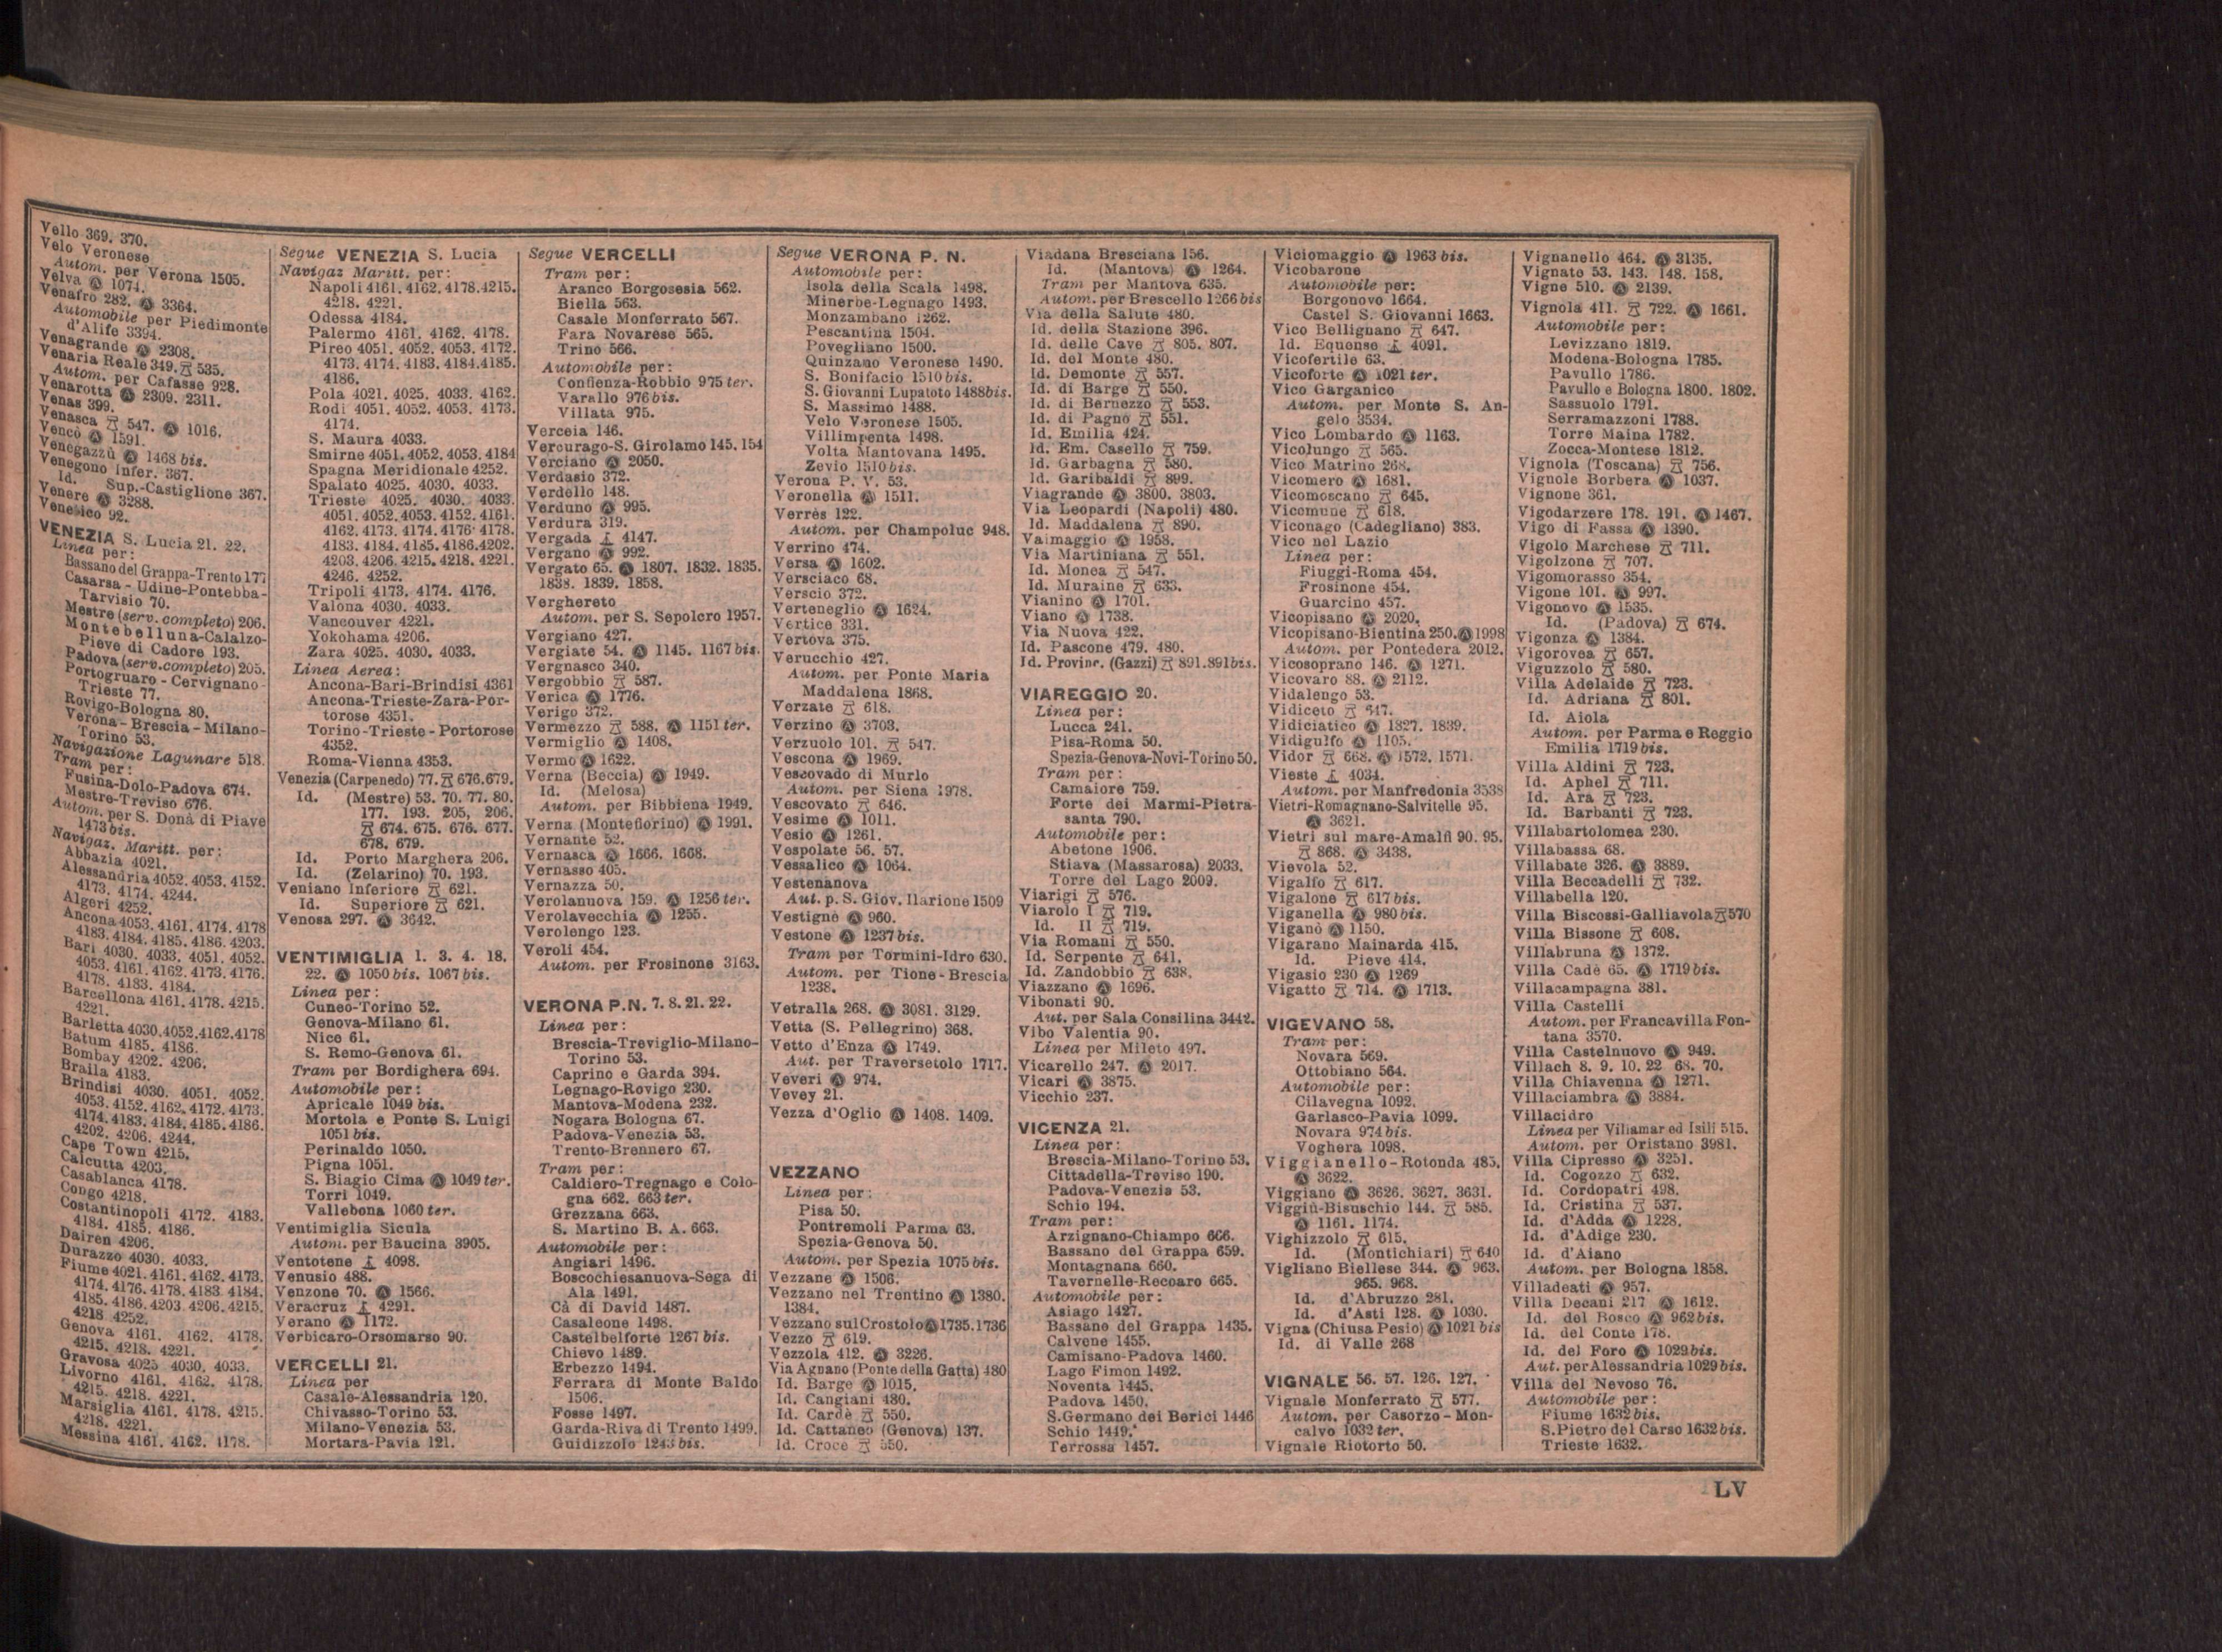 Vello 369. 370.
Velo Veronese
Autom. per Verona 1505.
Velva Ⓐ 1074.
Venafro 282. Ⓐ 3364.
Automobile per Piedimonte
d'Alife 3394.
Venagrande Ⓐ 2308.
Venaria Reale 349. 535.
Autom. per Cafasse 928.
Venarotta Ⓐ 2309. 2311.
Venas 399.
Venasca 547. Ⓐ 1016.
Vencò Ⓐ 1591.
Venegazzù Ⓐ 1468 bis.
Venegono Infer. 367.
Id. Sup.-Castiglione 367.
Venere Ⓐ 3288.
Venesico 92.
VENEZIA S. Lucia 21. 22.
Linea per:
Bassano del Grappa-Trento 177
Casarsa - Udine-Pontebba-
Tarvisio 70.
Mestre (serv. completo) 206.
Montebelluna-Calalzo-
Pieve di Cadore 193.
Padova (serv. completo) 205.
Portogruaro - Cervignano -
Trieste 77.
Rovigo-Bologna 80.
Verona - Brescia - Milano-
Torino 53.
Navigazione Lagunare 518.
Tram per:
Fusina-Dolo-Padova 674.
Mestre-Treviso 676.
Autom. per S. Donà di Piave
1473 bis.
Navigaz. Maritt. per:
Abbazia 4021.
Alessandria 4052. 4053. 4152.
4173. 4174. 4244.
Algeri 4252.
Ancona 4053. 4161. 4174. 4178
4183. 4184. 4185. 4186. 4203.
Bari 4030. 4033. 4051. 4052.
4053. 4161. 4162. 4173. 4176.
4178. 4183. 4184.
Barcellona 4161. 4178. 4215.
4221.
Barletta 4030. 4052. 4162. 4178
Batum 4185. 4186.
Bombay 4202. 4206.
Braila 4183.
Brindisi 4030. 4051. 4052.
4053. 4152. 4162. 4172. 4173.
4174. 4183. 4184. 4185. 4186.
4202. 4206. 4244.
Cape Town 4215.
Calcutta 4203.
Casablanca 4178.
Congo 4218.
Costantinopoli 4172. 4183.
4184. 4185. 4186.
Dairen 4206.
Durazzo 4030. 4033.
Fiume 4021. 4161. 4162. 4173.
4174. 4176. 4178. 4183. 4184.
4185. 4186. 4203. 4206. 4215.
4218. 4252.
Genova 4161. 4162. 4178.
4215. 4218. 4221.
Gravosa 4025 4030. 4033.
Livorno 4161. 4162. 4178.
4215. 4218. 4221.
Marsiglia 4161. 4178. 4215.
4218. 4221.
Messina 4161. 4162. 4178.
Segue VENEZIA S. Lucia
Navigaz Maritt. per:
Napoli 4161. 4162. 4178. 4215.
4218. 4221.
Odessa 4184.
Palermo 4161. 4162. 4178.
Pireo 4051. 4052. 4053. 4172.
4173. 4174. 4183. 4184. 4185.
4186.
Pola 4021. 4025. 4033. 4162.
Rodi 4051. 4052. 4053. 4173.
4174.
S. Maura 4033.
Smirne 4051. 4052. 4053. 4184
Spagna Meridionale 4252.
Spalato 4025. 4030. 4033.
Trieste 4025. 4030. 4033.
4051. 4052. 4053. 4152. 4161.
4162. 4173. 4174. 4176. 4178.
4183. 4184. 4185. 4186. 4202.
4203. 4206. 4215. 4218. 4221.
4246. 4252.
Tripoli 4173. 4174. 4176.
Valona 4030. 4033.
Vancouver 4221.
Yokohama 4206.
Zara 4025. 4030. 4033.
Linea Aerea:
Ancona-Bari-Brindisi 4361
Ancona-Trieste-Zara-Por-
torose 4351.
Torino-Trieste-Portorose
4352.
Roma-Vienna 4353.
Venezia (Carpenedo) 77. 676. 679.
Id. (Mestre) 53. 70. 77. 80.
177. 193. 205, 206.
674. 675. 676. 677.
678. 679.
Id. Porto Marghera 206.
Id. (Zelarino) 70. 193.
Veniano Inferiore 621.
Id. Superiore 621.
Venosa 297. Ⓐ 3642.
VENTIMIGLIA 1. 3. 4. 18.
22. Ⓐ 1050 bis. 1067 bis.
Linea per:
Cuneo-Torino 52.
Genova-Milano 61.
Nice 61.
S. Remo-Genova 61.
Tram per Bordighera 694.
Automobile per:
Apricale 1049 bis.
Mortola e Ponte S. Luigi
1051 bis.
Perinaldo 1050.
Pigna 1051.
S. Biagio Cima Ⓐ 1049 ter.
Torri 1049.
Vallebona 1060 ter.
Ventimiglia Sicula
Autom. per Baucina 3905.
Ventotene 4098.
Venusio 488.
Venzone 70. Ⓐ 1566.
Veracruz 4291.
Verano Ⓐ 1172.
Verbicaro-Orsomarso 90.
VERCELLI 21.
Linea per
Casale-Alessandria 120.
Chivasso-Torino 53.
Milano-Venezia 53.
Mortara-Pavia 121.
Segue VERCELLI
Tram per:
Aranco Borgosesia 562.
Biella 563.
Casale Monferrato 567.
Fara Novarese 565.
Trino 566.
Automobile per:
Confienza-Robbio 975 ter.
Varallo 976 bis.
Villata 975.
Verceia 146.
Vercurago-S. Girolamo 145. 154
Verciano Ⓐ 2050.
Verdasio 372.
Verdello 148.
Verduno Ⓐ 995.
Verdura 319.
Vergada 4147.
Vergano Ⓐ 992.
Vergato 65. Ⓐ 1807. 1832. 1835.
1838. 1839. 1858.
Verghereto
Autom. per S. Sepolcro 1957.
Vergiano 427.
Vergiate 54. Ⓐ 1145. 1167 bis.
Vergnasco 340.
Vergobbio 587.
Verica Ⓐ 1776.
Verigo 372.
Vermezzo 588. Ⓐ 1151 ter.
Vermiglio Ⓐ 1408.
Vermo Ⓐ 1622.
Verna (Beccia) Ⓐ 1949.
Id. (Melosa)
Autom. per Bibbiena 1949.
Verna (Montefiorino) Ⓐ 1991.
Vernante 52.
Vernasca Ⓐ 1666. 1668.
Vernasso 405.
Vernazza 50.
Verolanuova 159. Ⓐ 1256 ter.
Verolavecchia Ⓐ 1255.
Verolengo 123.
Veroli 454.
Autom. per Frosinone 3163.
VERONA P.N. 7. 8. 21. 22.
Linea per:
Brescia-Treviglio-Milano-
Torino 53.
Caprino e Garda 394.
Legnago-Rovigo 230.
Mantova-Modena 232.
Nogara Bologna 67.
Padova-Venezia 53.
Trento-Brennero 67.
Tram per:
Caldiero-Tregnago e Colo-
gna 662. 663 ter.
Grezzana 663.
S. Martino B. A. 663.
Automobile per:
Angiari 1496.
Boscochiesanuova-Sega di
Ala 1491.
Cà di David 1487.
Casaleone 1498.
Castelbelforte 1267 bis.
Chievo 1489.
Erbezzo 1494.
Ferrara di Monte Baldo
1506.
Fosse 1497.
Garda-Riva di Trento 1499.
Guidizzolo 1243 bis.
Segue VERONA P. N.
Automobile per:
Isola della Scala 1498.
Minerbe-Legnago 1493.
Monzambano 1262.
Pescantina 1504.
Povegliano 1500.
Quinzano Veronese 1490.
S. Bonifacio 1510 bis.
S. Giovanni Lupatoto 1488 bis.
S. Massimo 1488.
Velo Veronese 1505.
Villimpenta 1498.
Volta Mantovana 1495.
Zevio 1510 bis.
Verona P. V. 53.
Veronella Ⓐ 1511.
Verrès 122.
Autom. per Champoluc 948.
Verrino 474.
Versa Ⓐ 1602.
Versciaco 68.
Verscio 372.
Verteneglio Ⓐ 1624.
Vertice 331.
Vertova 375.
Verucchio 427.
Autom. per Ponte Maria
Maddalena 1868.
Verzate 618.
Verzino Ⓐ 3703.
Verzuolo 101. 547.
Vescona Ⓐ 1969.
Vescovado di Murlo
Autom. per Siena 1978.
Vescovato 646.
Vesime Ⓐ 1011.
Vesio Ⓐ 1261.
Vespolate 56. 57.
Vessalico Ⓐ 1064.
Vestenanova
Aut. p. S. Giov. Ilarione 1509
Vestignè Ⓐ 960.
Vestone Ⓐ 1237 bis.
Tram per Tormini-Idro 630.
Autom. per Tione-Brescia
1238.
Vetralla 268. Ⓐ 3081. 3129.
Vetta (S. Pellegrino) 368.
Vetto d'Enza Ⓐ 1749.
Aut. per Traversetolo 1717.
Veveri Ⓐ 974.
Vevey 21.
Vezza d'Oglio Ⓐ 1408. 1409.
VEZZANO
Linea per:
Pisa 50.
Pontremoli Parma 63.
Spezia-Genova 50.
Autom. per Spezia 1075 bis.
Vezzane Ⓐ 1506.
Vezzano nel Trentino Ⓐ 1380.
1384.
Vezzano sul Crostolo Ⓐ 1735. 1736
Vezzo 619.
Vezzola 412. Ⓐ 3226.
Via Agnano (Ponte della Gatta) 480
Id. Barge Ⓐ 1015.
Id. Cangiani 480.
Id. Cardè 550.
Id. Cattaneo (Genova) 137.
Id. Croce 550.
Viadana Bresciana 156.
Id. (Mantova) Ⓐ 1264.
Tram per Mantova 635.
Autom. per Brescello 1266 bis
Via della Salute 480.
Id. della Stazione 396.
Id. delle Cave 805. 807.
Id. del Monte 480.
Id. Demonte 557.
Id. di Barge 550.
Id. di Bernezzo 553.
Id. di Pagno 551.
Id. Emilia 424.
Id. Em. Casello 759.
Id. Garbagna 580.
Id. Garibaldi 899.
Viagrande Ⓐ 3800. 3803.
Via Leopardi (Napoli) 480.
Id. Maddalena 890.
Vaimaggio Ⓐ 1958.
Via Martiniana 551.
Id. Monea 547.
Id. Muraine 633.
Vianino Ⓐ 1701.
Viano Ⓐ 1738.
Via Nuova 422.
Id. Pascone 479. 480.
Id. Provinc. (Gazzi) 891. 891 bis.
VIAREGGIO 20.
Linea per:
Lucca 241.
Pisa-Roma 50.
Spezia-Genova-Novi-Torino 50.
Tram per:
Camaiore 759.
Forte dei Marmi-Pietra-
santa 790.
Automobile per:
Abetone 1906.
Stiava (Massarosa) 2033.
Torre del Lago 2009.
Viarigi 576.
Viarolo I 719.
Id. II 719.
Via Romani 550.
Id. Serpente 641.
Id. Zandobbio 638.
Viazzano Ⓐ 1696.
Vibonati 90.
Aut. per Sala Consilina 3442.
Vibo Valentia 90.
Linea per Mileto 497.
Vicarello 247. Ⓐ 2017.
Vicari Ⓐ 3875.
Vicchio 237.
VICENZA 21.
Linea per:
Brescia-Milano-Torino 53.
Cittadella-Treviso 190.
Padova-Venezia 53.
Schio 194.
Tram per:
Arzignano-Chiampo 666.
Bassano del Grappa 659.
Montagnana 660.
Tavernelle-Recoaro 665.
Automobile per:
Asiago 1427.
Bassano del Grappa 1435.
Calvene 1455.
Camisano-Padova 1460.
Lago Fimon 1492.
Noventa 1445.
Padova 1450.
S. Germano dei Berici 1446
Schio 1449.
Terrossa 1457.
Viciomaggio Ⓐ 1963 bis.
Vicobarone
Automobile per:
Borgonovo 1664.
Castel S. Giovanni 1663.
Vico Bellignano 647.
Id. Equense 4091.
Vicofertile 63.
Vicoforte Ⓐ 1021 ter.
Vico Garganico
Autom. per Monte S. An-
gelo 3534.
Vico Lombardo Ⓐ 1163.
Vicolungo 565.
Vico Matrino 268.
Vicomero Ⓐ 1681.
Vicomoscano 645.
Vicomune 618.
Viconago (Cadegliano) 383.
Vico nel Lazio
Linea per:
Fiuggi-Roma 454.
Frosinone 454.
Guarcino 457.
Vicopisano Ⓐ 2020.
Vicopisano-Bientina 250. Ⓐ 1998
Autom. per Pontedera 2012.
Vicosoprano 146. Ⓐ 1271.
Vicovaro 88. Ⓐ 2112.
Vidalengo 53.
Vidiceto 647.
Vidiciatico Ⓐ 1827. 1839.
Vidigulfo Ⓐ 1105.
Vidor 668. Ⓐ 1572. 1571.
Vieste 4034.
Autom. per Manfredonia 3538
Vietri-Romagnano-Salvitelle 95.
Ⓐ 3621.
Vietri sul mare-Amalfi 90. 95.
868. Ⓐ 3438.
Vievola 52.
Vigalfo 617.
Vigalone 617 bis.
Viganella Ⓐ 980 bis.
Viganò Ⓐ 1150.
Vigarano Mainarda 415.
Id. Pieve 414.
Vigasio 230 Ⓐ 1269
Vigatto 714. Ⓐ 1713.
VIGEVANO 58.
Tram per:
Novara 569.
Ottobiano 564.
Automobile per:
Cilavegna 1092.
Garlasco-Pavia 1099.
Novara 974 bis.
Voghera 1098.
Viggianello-Rotonda 485.
Ⓐ 3622.
Viggiano Ⓐ 3626. 3627. 3631.
Viggiù-Bisuschio 144. 585.
Ⓐ 1161. 1174.
Vighizzolo 615.
Id. (Montichiari) 640
Vigliano Biellese 344. Ⓐ 963.
965. 968.
Id. d'Abruzzo 281.
Id. d'Asti 128. Ⓐ 1030.
Vigna (Chiusa Pesio) Ⓐ 1021 bis
Id. di Valle 268
VIGNALE 56. 57. 126. 127.
Vignale Monferrato 577.
Autom. per Casorzo - Mon-
calvo 1032 ter.
Vignale Riotorto 50.
Vignanello 464. Ⓐ 3135.
Vignate 53. 143. 148. 158.
Vigne 510. Ⓐ 2139.
Vignola 411. 722. Ⓐ 1661.
Automobile per:
Levizzano 1819.
Modena-Bologna 1785.
Pavullo 1786.
Pavullo e Bologna 1800. 1802.
Sassuolo 1791.
Serramazzoni 1788.
Torre Maina 1782.
Zocca-Montese 1812.
Vignola (Toscana) 756.
Vignole Borbera Ⓐ 1037.
Vignone 361.
Vigodarzere 178. 191. Ⓐ 1467.
Vigo di Fassa Ⓐ 1390.
Vigolo Marchese 711.
Vigolzone 707.
Vigomorasso 354.
Vigone 101. Ⓐ 997.
Vigonovo Ⓐ 1535.
Id. (Padova) 674.
Vigonza Ⓐ 1384.
Vigorovea 657.
Viguzzolo 580.
Villa Adelaide 723.
Id. Adriana 801.
Id. Aiola
Autom. per Parma e Reggio
Emilia 1719 bis.
Villa Aldini 723.
Id. Aphel 711.
Id. Ara 723.
Id. Barbanti 723.
Villabartolomea 230.
Villabassa 68.
Villabate 326. Ⓐ 3889.
Villa Beccadelli 732.
Villabella 120.
Villa Biscossi-Galliavola 570
Villa Bissone 608.
Villabruna Ⓐ 1372.
Villa Cadè 65. Ⓐ 1719 bis.
Villacampagna 381.
Villa Castelli
Autom. per Francavilla Fon-
tana 3570.
Villa Castelnuovo Ⓐ 949.
Villach 8. 9. 10. 22 68. 70.
Villa Chiavenna Ⓐ 1271.
Villaciambra Ⓐ 3884.
Villacidro
Linea per Villamar ed Isili 515.
Autom. per Oristano 3981.
Villa Cipresso Ⓐ 3251.
Id. Cogozzo 632.
Id. Cordopatri 498.
Id. Cristina 537.
Id. d'Adda Ⓐ 1228.
Id. d'Adige 230.
Id. d'Aiano
Autom. per Bologna 1858.
Villadeati Ⓐ 957.
Villa Decani 217 Ⓐ 1612.
Id. del Bosco Ⓐ 962 bis.
Id. del Conte 178.
Id. del Foro Ⓐ 1029 bis.
Aut. per Alessandria 1029 bis.
Villa del Nevoso 76.
Automobile per:
Fiume 1632 bis.
S. Pietro del Carso 1632 bis.
Trieste 1632.
LV